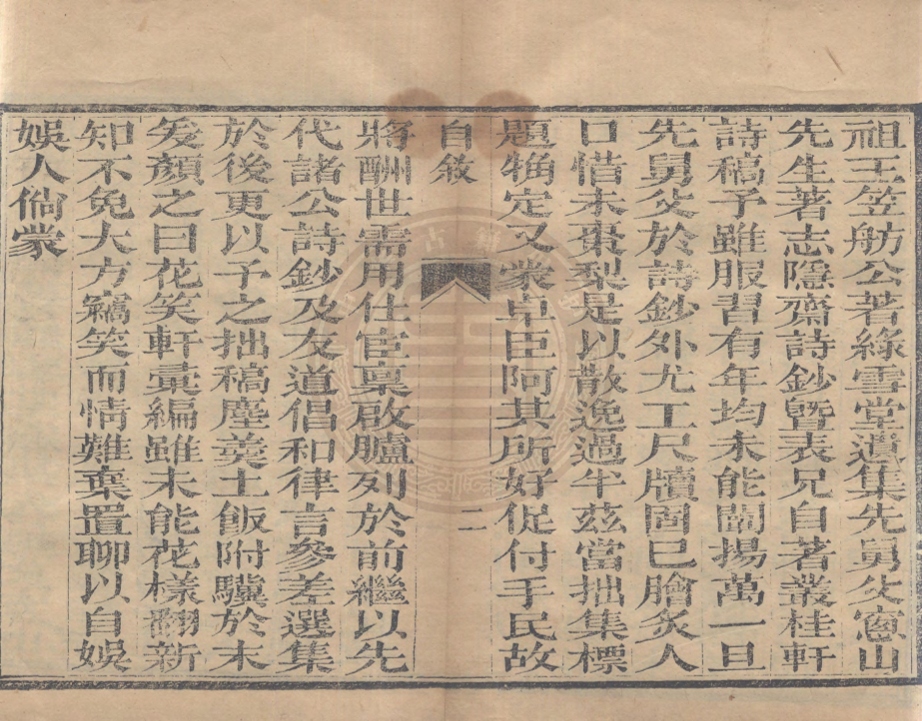 祖王笠舫公著綠雪堂遺集先舅父窻山
先生著志隱齋詩鈔曁表兄自著叢桂軒
詩稿予雖服習有年均未能闡揚萬一且
先舅父於詩鈔外尤工尺牘固已膾炙人
口惜未棗梨是以散逸過半茲當拙集標
題犕定又蒙卓臣阿其所好促付手民故
自敘
二
將酬世需用仕宦稟啟臚列於前繼以先
代諸公詩鈔及友道倡和律言參差選集
於後更以予之拙稿塵羮土飯附驥於末
爰顏之曰花笑軒彙編雖未能花樣翻新
知不免大方竊笑而情難棄置聊以自娛
娛人倘蒙